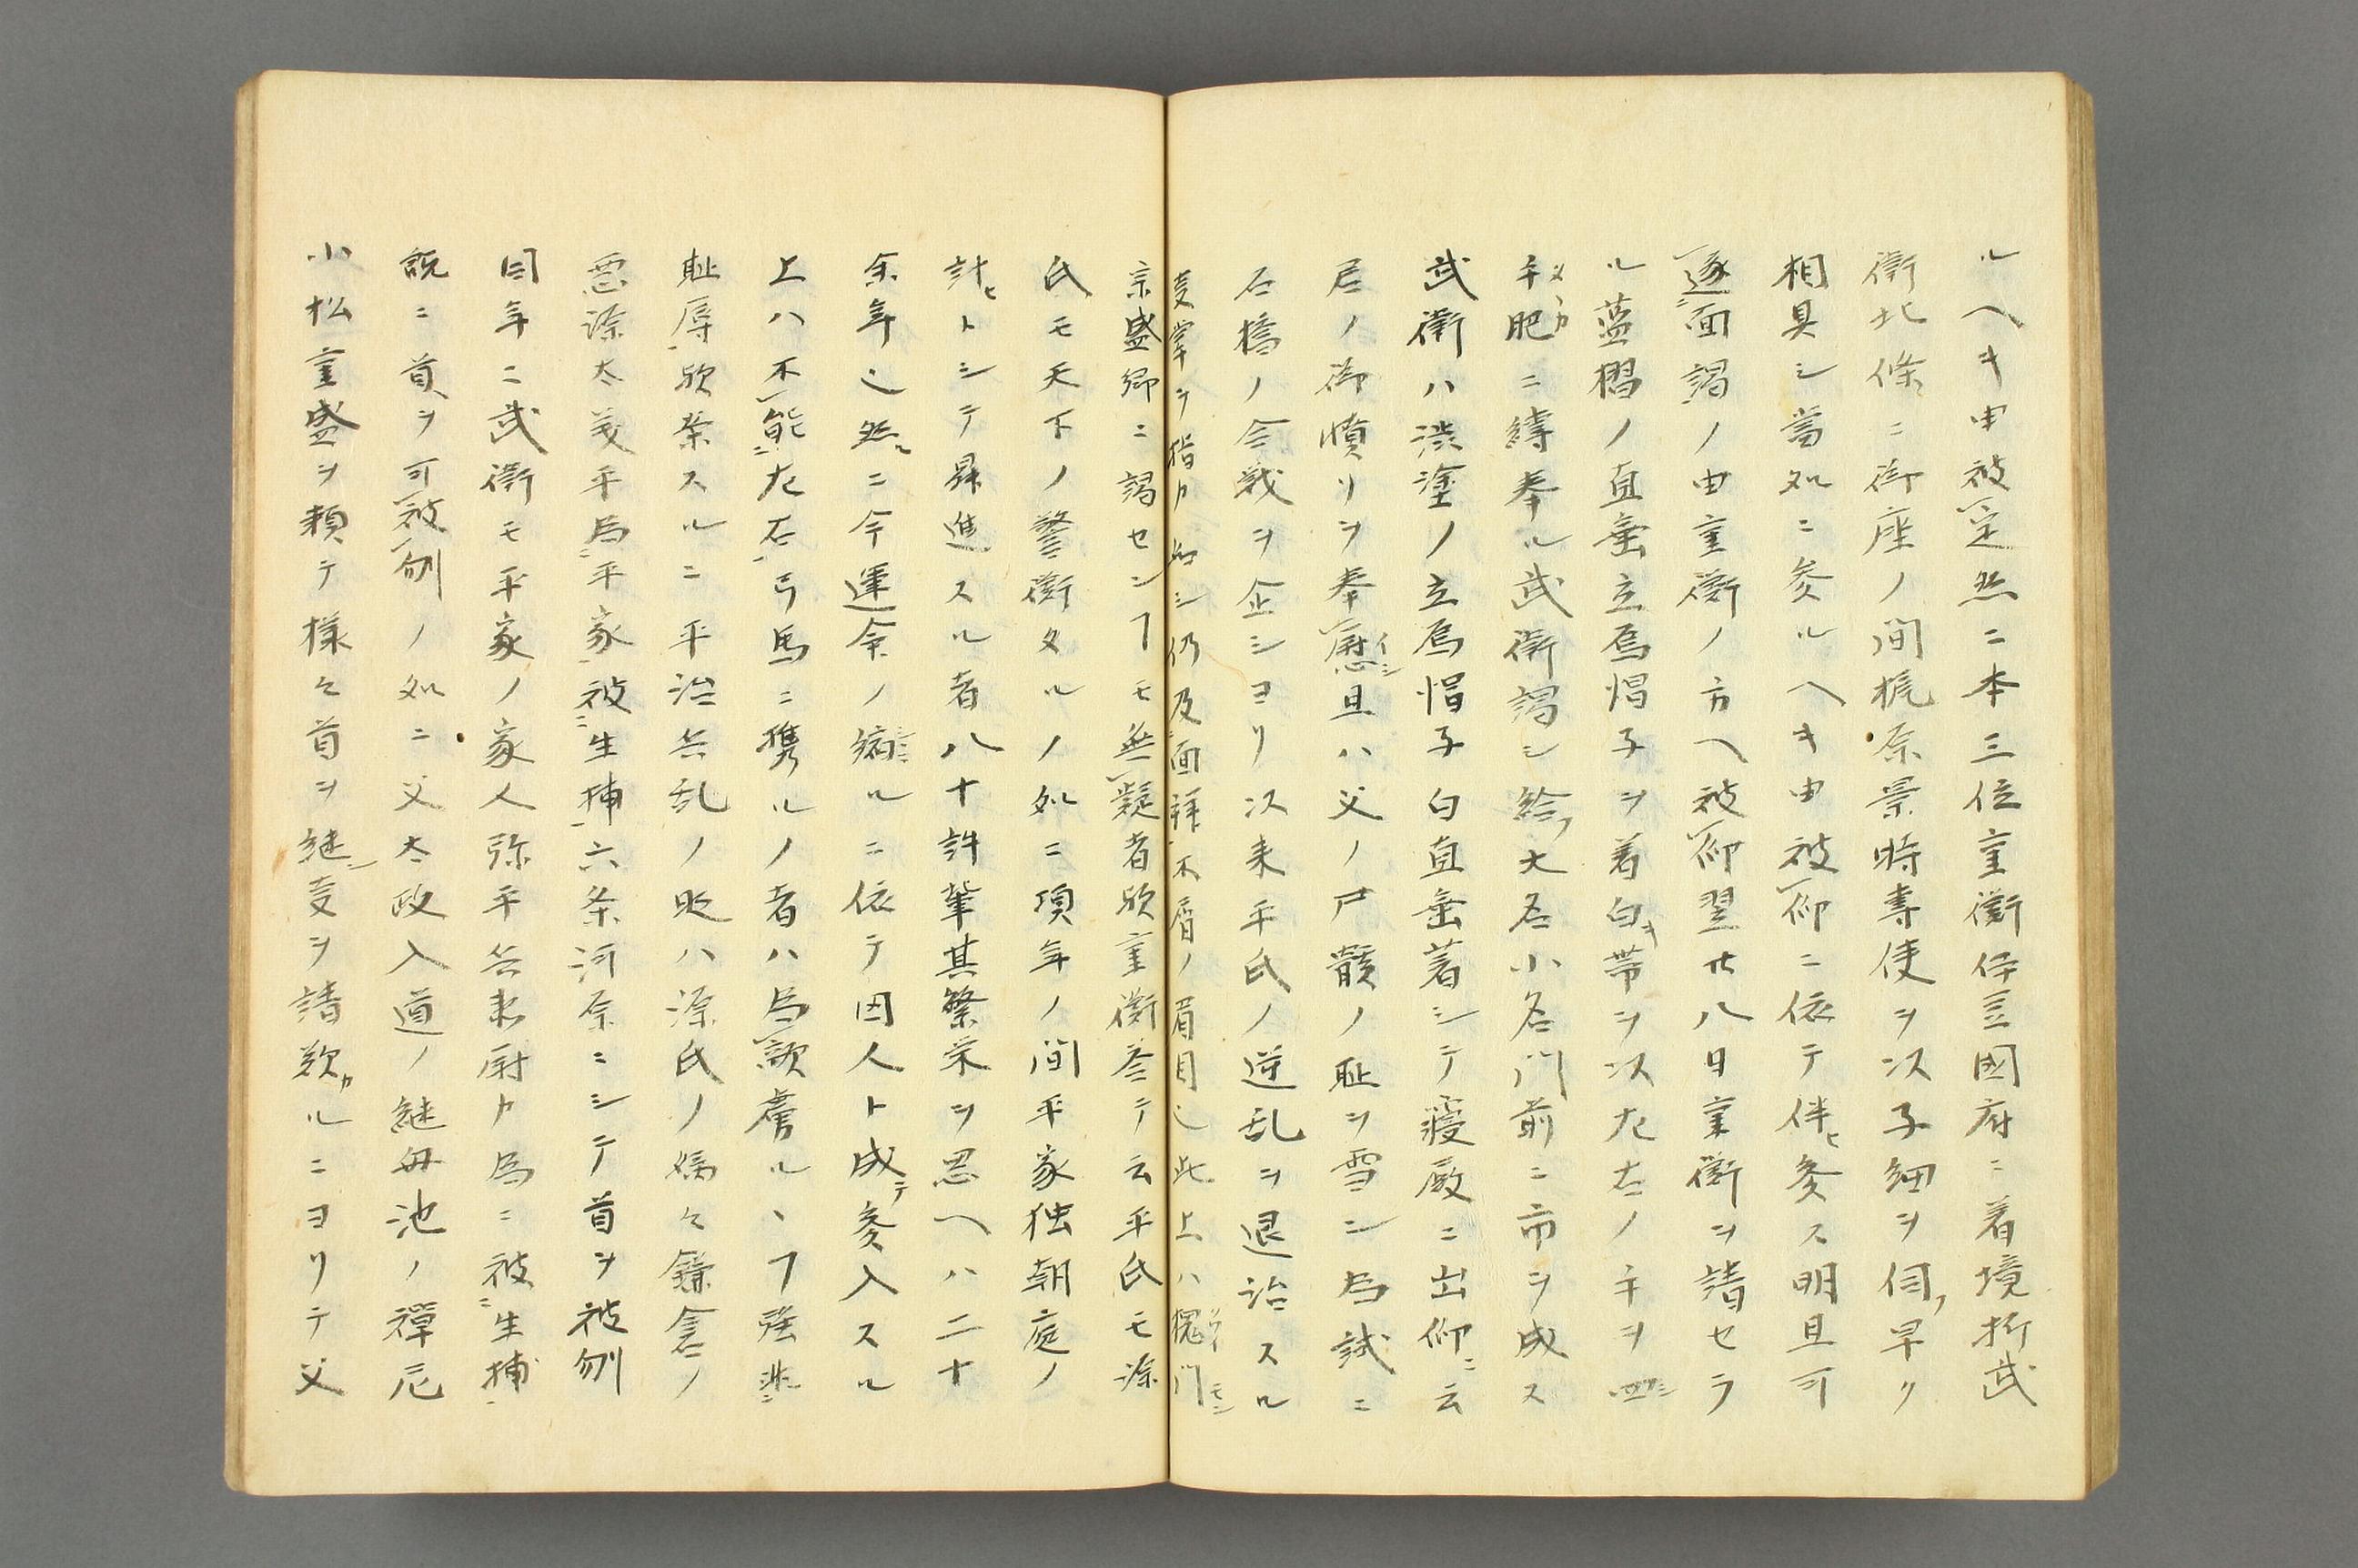 ルヘキ由被定然ニ本三位重衡伊豆國府ニ着境折武
衛北條ニ御座ノ間梶原景時専使ヲ以子細ヲ伺フ早ク
相具シ當処ニ参ルヘキ由被仰ニ依テ伴ヒ参ス明旦可
遂面謁ノ由重衡ノ方ヘ被仰翌廿八日重衡ヲ請セラ
ル藍摺ノ直垂立烏帽子ヲ着白キ帯ヲ以左右ノ手ヲ四
手肥ニ縛奉ル武衛謁シ給フ大名小名門前ニ市ヲ成ス
武衛ハ渋塗ノ立烏帽子白直垂着シテ寝殿ニ出仰ニ云
君ノ御憤リヲ奉慰且ハ父ノ尸骸ノ耻ヲ雪ン為試ニ
石橋ノ合戦ヲ企シヨリ以来平氏ノ逆乱ヲ退治スル
支掌ヲ指カ如シ仍及面拝不屑ノ眉目也此上ハ槐門
宗盛卿ニ謁センヿモ無疑者歟重衡荅テ云平氏モ源
氏モ天下ノ警衛タルノ如ニ頃年ノ間平家独朝庭ノ
計ヒトシテ昇進スル者八十許輩其繁栄ヲ思ヘハ二十
余年也然ルニ今運命ノ縮ルニ依テ囚人ト成テ参入スル
上ハ不能左右弓馬ニ携ルノ者ハ為敵虜ルヽヿ強非
耻辱歟楽スルニ平治兵乱ノ比ハ源氏ノ嫡々鎌倉ノ
悪源太義平為平家被生捕六条河原ニシテ首ヲ被刎
同年ニ武衛モ平家ノ家人弥平兵衛尉カ為ニ被生捕
説ニ首ヲ可被刎ノ如ニ父太政入道ノ継母池ノ禅尼
小松重盛ヲ頼テ様々首ヲ継支ヲ請歎カルニヨリテ父